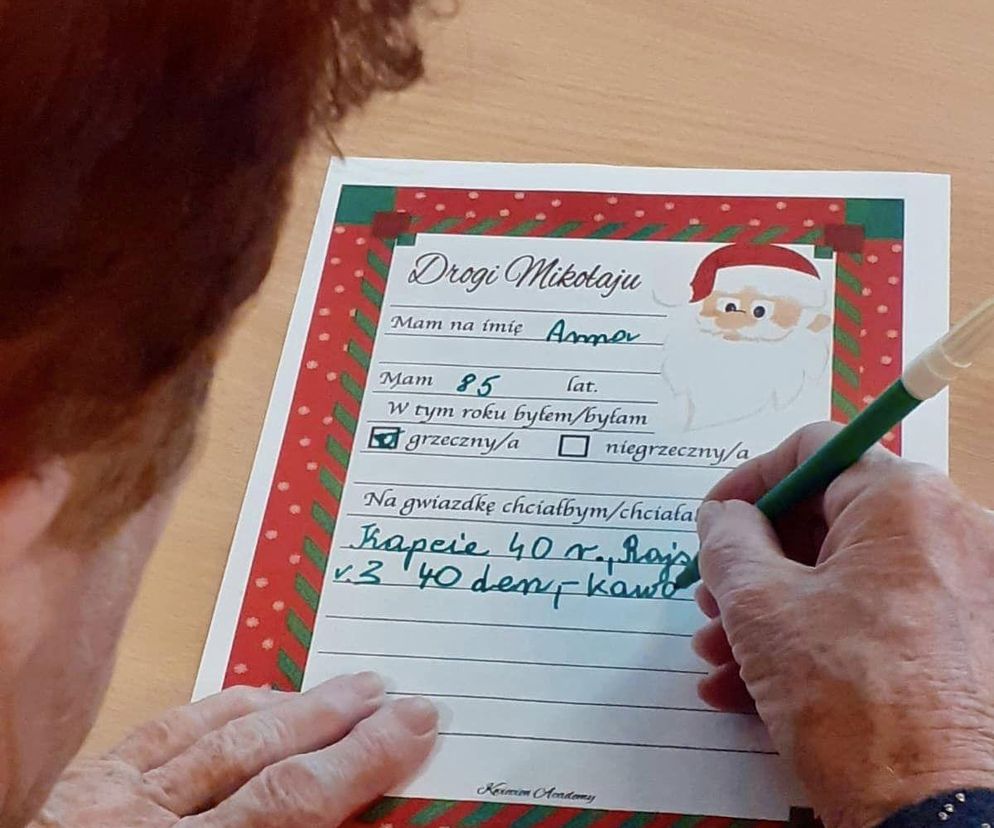 Drogi Mikołaju
Mam na imię Anna
Mam 85 lat.
W tym roku byłem/byłam
grzeczny/a niegrzeczny/a
Na gwiazdkę chciałbym/chciała
Kapcie 40 r., Rajs
r.3 40 den,- kawa
Academy